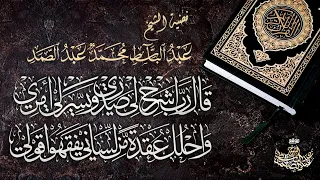 فضيلة الشيخ
عبد الباسط محمد عبد الصمد
قال رب اشرح لي صدري ويسر لي أمري
واحلل عقدة من لساني يفقهوا قولي